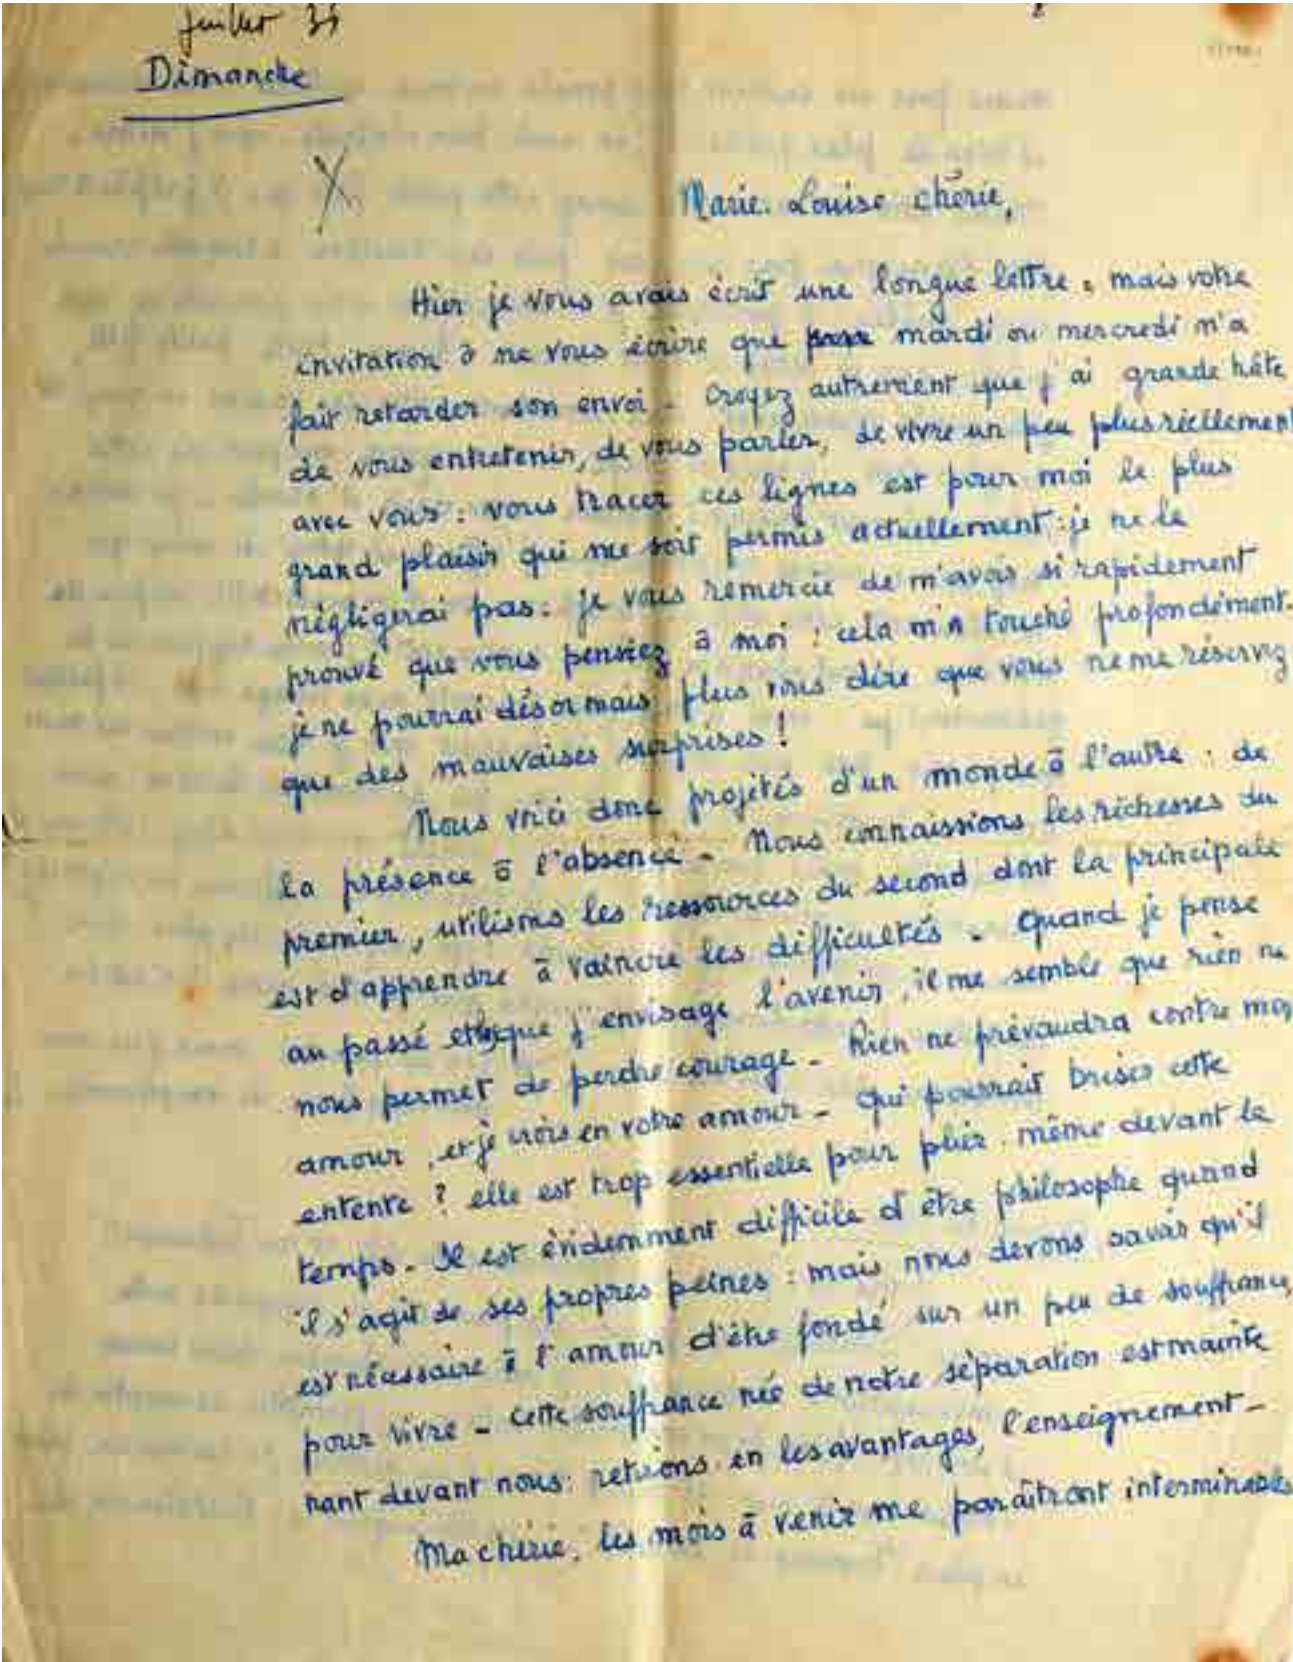 juillet 35
Dimanche
Marie-Louise chérie,
Hier je vous avais écrit une longue lettre, mais votre
invitation à ne vous écrire que mardi ou mercredi m'a
fait retarder son envoi - croyez autrement que j'ai grande hâte
de vous entretenir, de vous parler, de vivre un peu plus réellement
avec vous : vous tracer ces lignes est pour moi le plus
grand plaisir qui me soit permis actuellement : je ne le
négligerai pas : je vous remercie de m'avoir si rapidement
prouvé que vous pensiez à moi : cela m'a touché profondément.
je ne pourrai désormais plus vous dire que vous ne me réservez
que des mauvaises surprises !
Nous voici donc projetés d'un monde à l'autre : de
la présence à l'absence - Nous connaissions les richesses du
premier, utilisons les ressources du second dont la principale
est d'apprendre à vaincre les difficultés - Quand je pense
au passé et que j'envisage l'avenir, il me semble que rien ne
nous permet de perdre courage - Rien ne prévaudra contre mon
amour, et je crois en votre amour - qui pourrait briser cette
entente ? elle est trop essentielle pour plier même devant le
temps - Il est évidemment difficile d'être philosophe quand
il s'agit de ses propres peines : mais nous devons savoir qu'il
est nécessaire à l'amour d'être fondé sur un peu de souffrance,
pour vivre - cette souffrance née de notre séparation est mainte
nant devant nous : retirons-en les avantages, l'enseignement -
Ma chérie, les mois à venir me paraîtront interminables